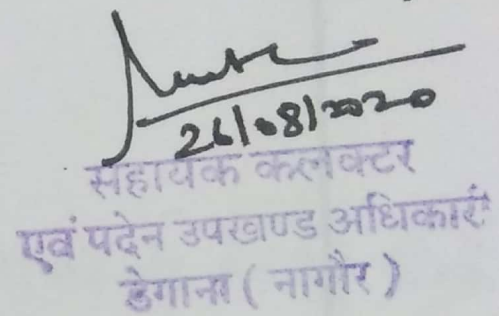 26/08/2020
सहायक कलक्टर
एवं पदेन उपखण्ड अधिकारी
डेगाना ( नागौर )